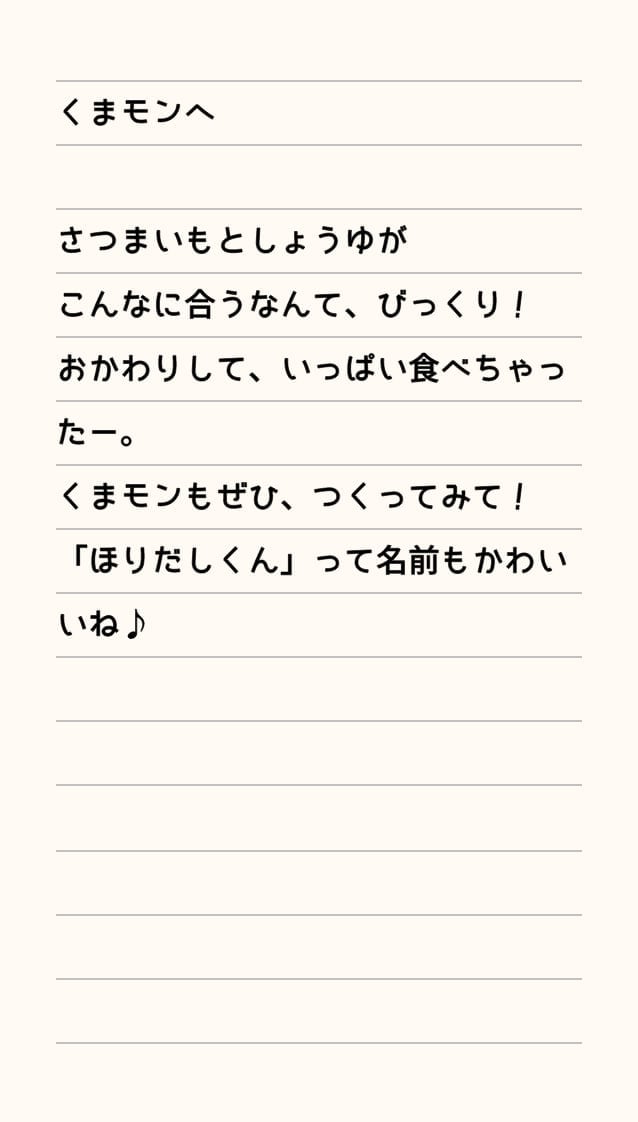 くまモンへ
さつまいもとしょうゆが
こんなに合うなんて、びっくり！
おかわりして、いっぱい食べちゃっ
たー。
くまモンもぜひ、つくってみて！
「ほりだしくん」って名前もかわい
いね♪